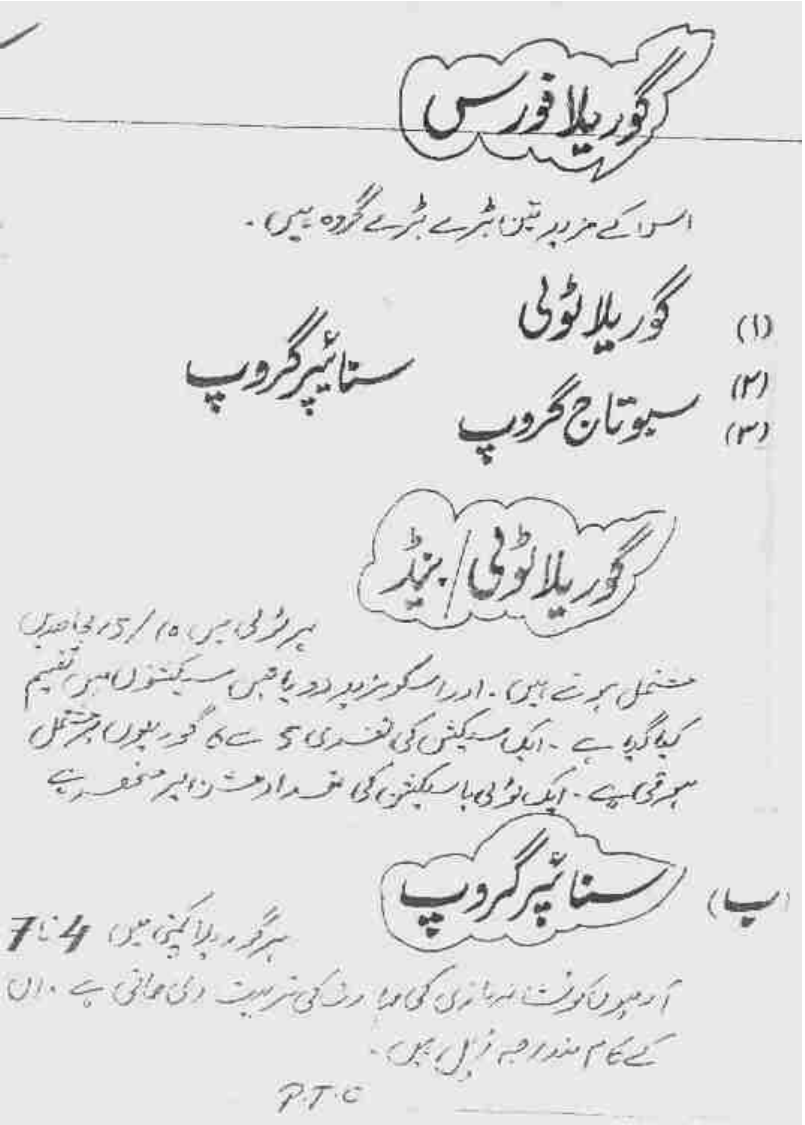 گوریلا فورس
اسکے مزید تین بڑے بڑے گروہ ہیں۔
(۱) گوریلا ٹولی
(۲) سنائیپر گروپ
(۳) سبوتاج گروپ
گوریلا ٹولی / بینڈ
ہر ٹولی میں 10/15 مجاھدین
مشتمل ہوتے ہیں۔ اور اسکو مزید دو یا تین سیکشنوں میں تقسیم
کیا گیا ہے۔ ایک سیکشن کی نفری 5 سے 6 گوریلوں پر مشتمل
ہوتی ہے۔ ایک ٹولی یا سیکشن کی تعداد مشن پر منحصر ہے
(پ) سنائپر گروپ
ہر گوریلا کمپنی میں 4 تا 7
آدمیوں کو نشانہ بازی کی مہارت کی تربیت دی جاتی ہے۔ ان
کے کام مندرجہ ذیل ہیں۔
P.T.O